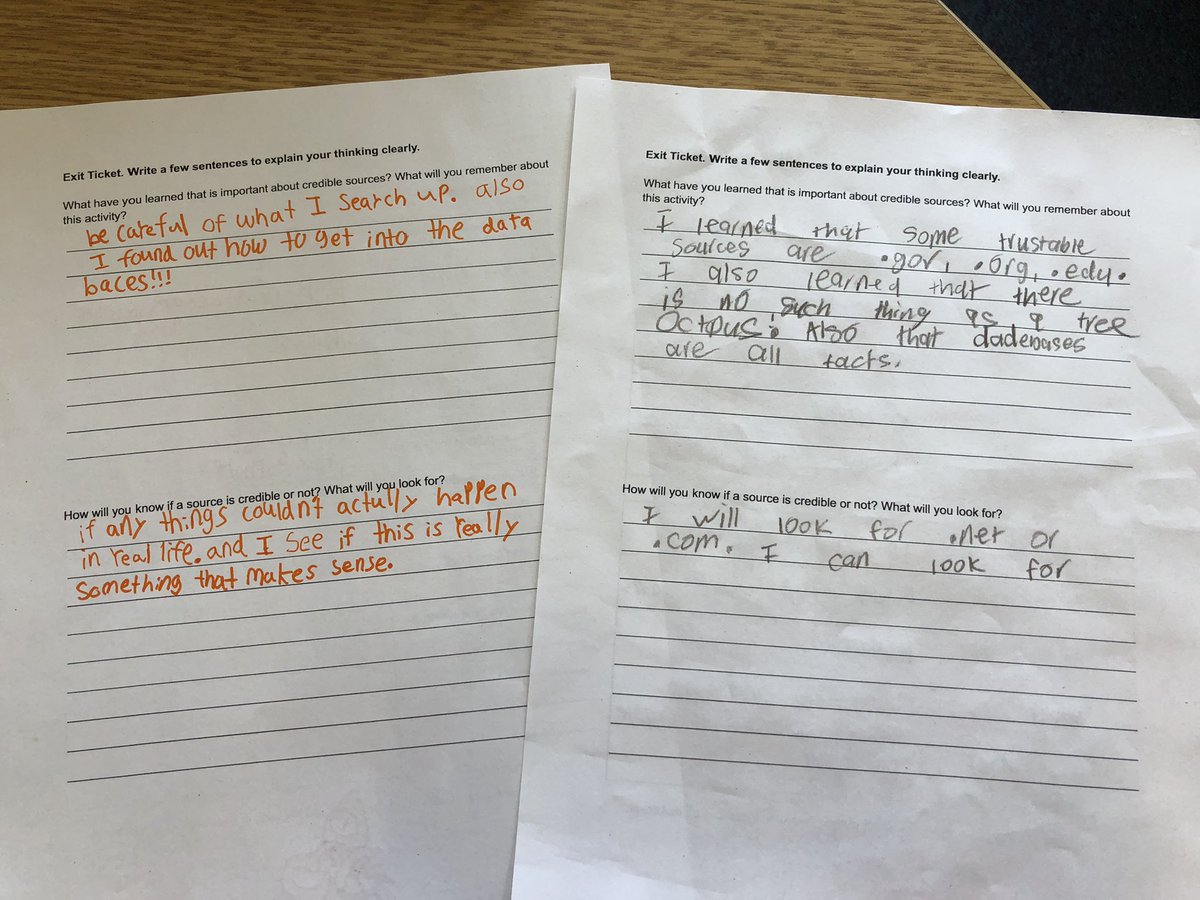 Exit Ticket. Write a few sentences to explain your thinking clearly.
What have you learned that is important about credible sources? What will you remember about
this activity?
be careful of what I search up. also
I found out how to get into the data
baces!!!
How will you know if a source is credible or not? What will you look for?
if any things couldn't actully happen
in real life. and I see if this is really
something that makes sense.
Exit Ticket. Write a few sentences to explain your thinking clearly.
What have you learned that is important about credible sources? What will you remember about
this activity?
I learned that some trustable
sources are .gov, .org, .edu.
I also learned that there
is no such thing as a tree
Octpus. Also that dadebases
are all facts.
How will you know if a source is credible or not? What will you look for?
I will look for .net or
.com. I can look for